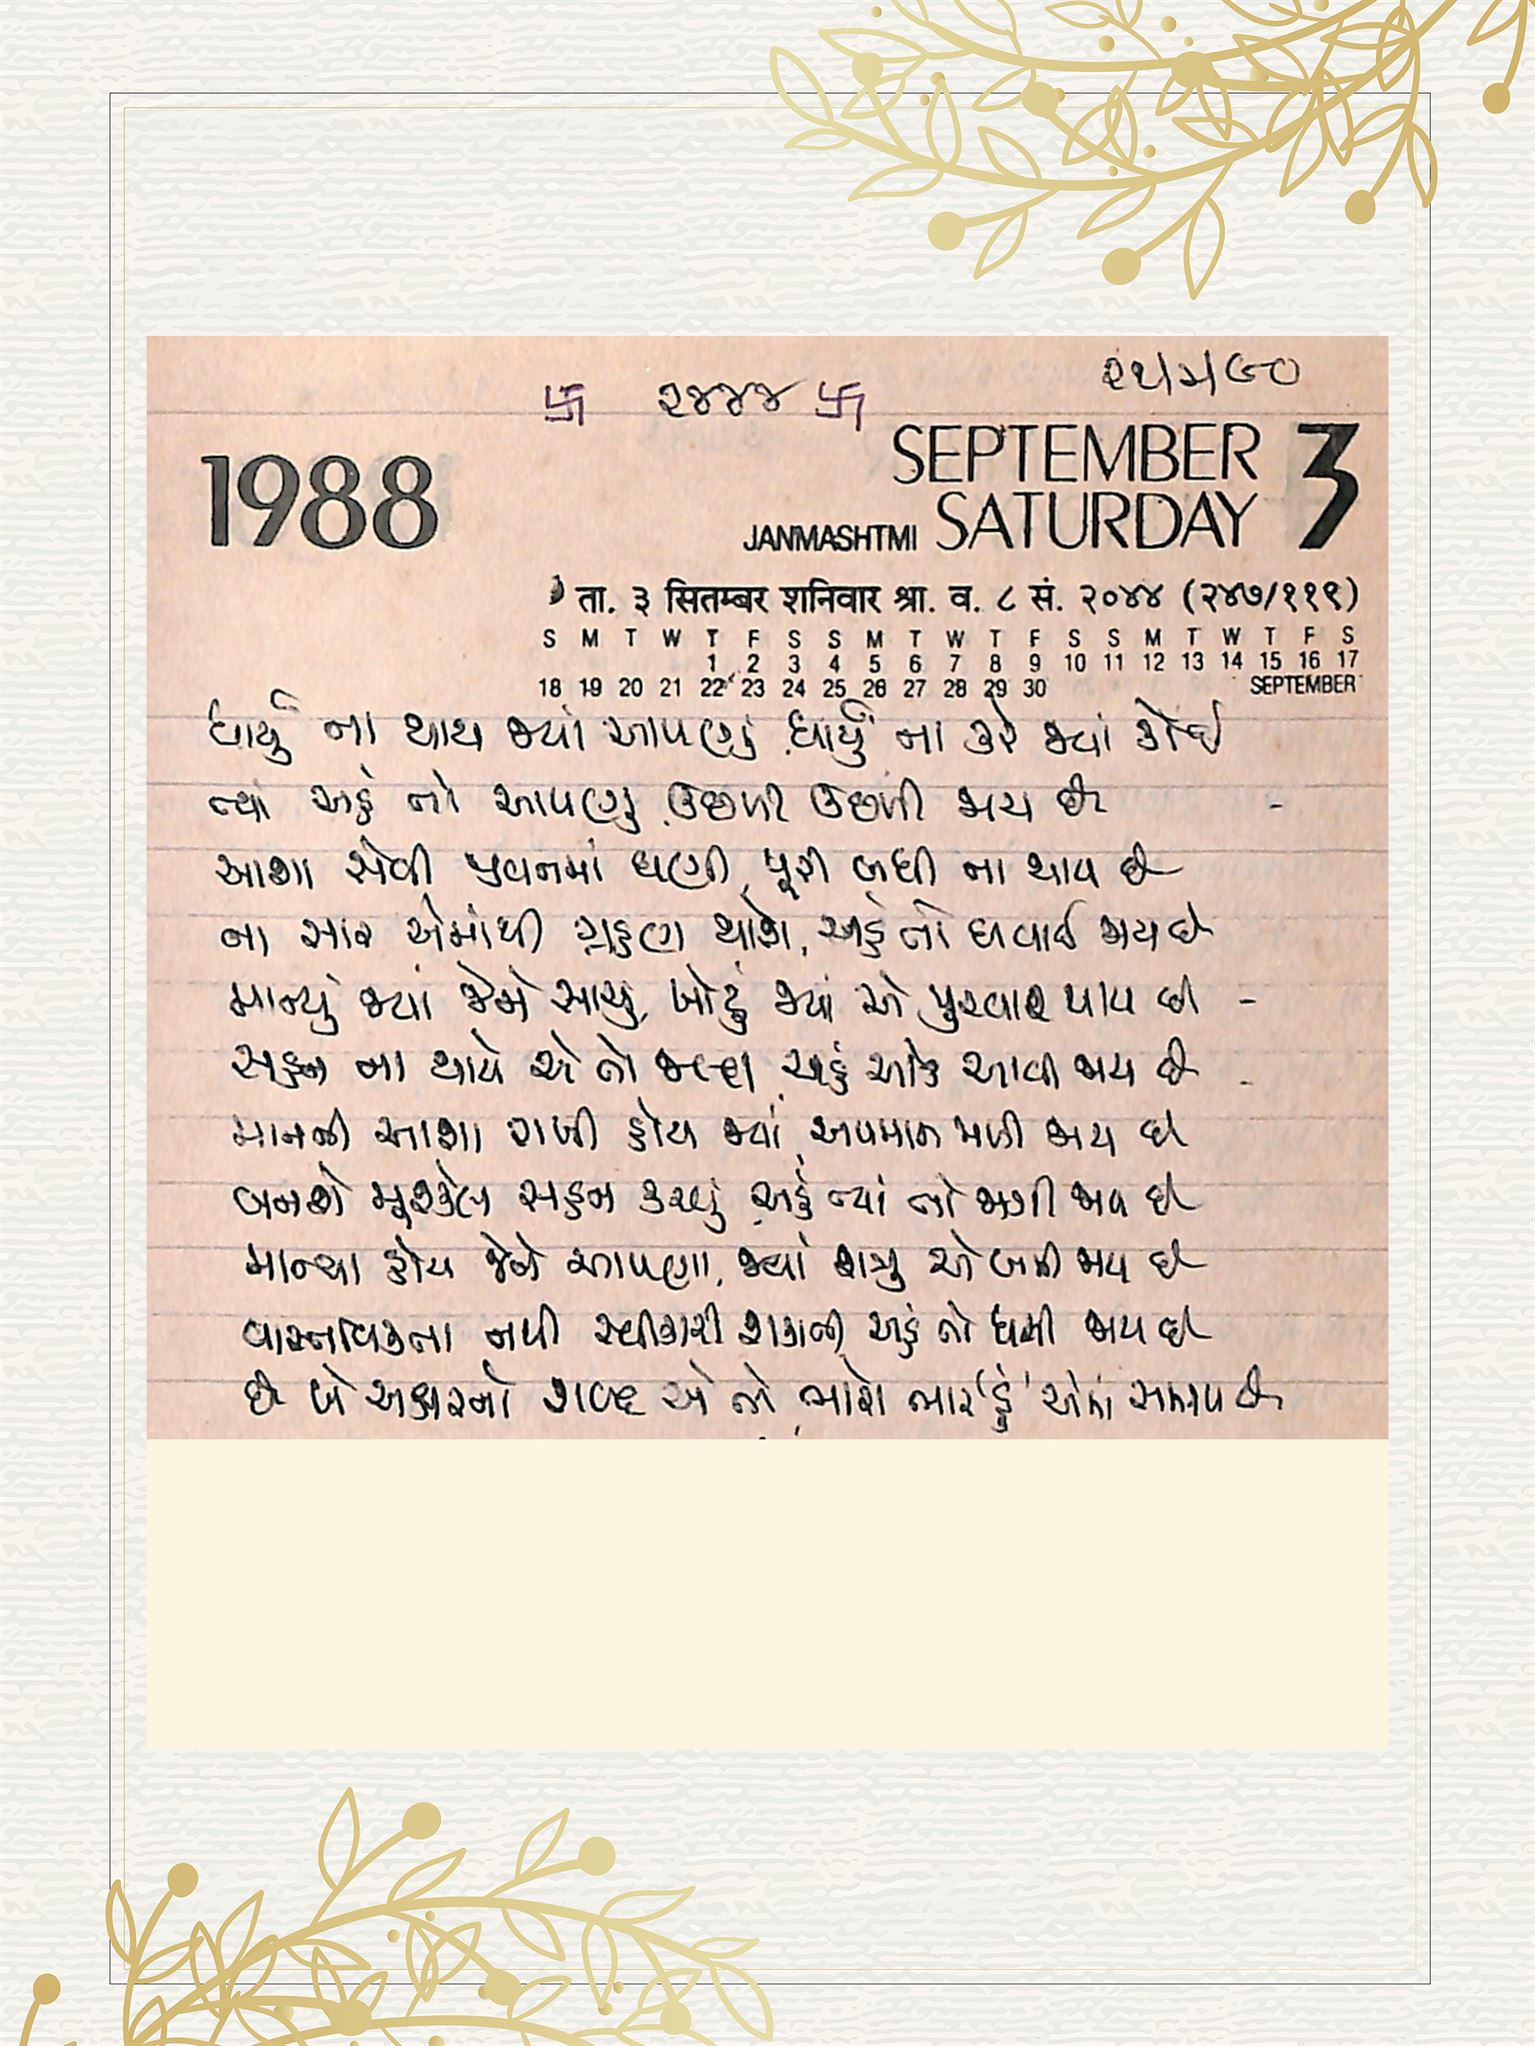 卐 ૨૪૪૪ 卐 ૨૫/૫/૯૦
1988 SEPTEMBER 3
JANMASHTMI SATURDAY
ता. ३ सितम्बर शनिवार श्रा. व. ८ सं. २०४४ (२४७/११९)
S M T W T F S S M T W T F S S M T W T F S
1 2 3 4 5 6 7 8 9 10 11 12 13 14 15 16 17
18 19 20 21 22 23 24 25 26 27 28 29 30 SEPTEMBER
ધાર્યું ના થાય જ્યાં આપણું ધાર્યું ના કરે જ્યાં કોઈ
ત્યાં અહં તો આપણું ઉછળી ઉછળી જાય છે -
આશા સેવી જીવનમાં ઘણી, પૂરી બધી ના થાય છે
ના સાર એમાંથી ગ્રહણ થાશે, અહં તો ઘવાઈ જાય છે
માન્યું જ્યાં જેને સાચું, ખોટું જ્યાં એ પુરવાર થાય છે -
સહન ના થાયે એ તો જલ્દી અહં આડે આવી જાય છે -
માનની આશા રાખી હોય જ્યાં, અપમાન મળી જાય છે
બનશે મૂશ્કેલ સહન કરવું, અહં ત્યાં તો જાગી જાય છે
માન્યા હોય જેને આપણા, જ્યાં શત્રુ એ બની જાય છે
વાસ્તવિકતા નથી સ્વીકારી શકાતી, અહં તો ઘમી જાય છે
છે બે અક્ષરનો શબ્દ એ તો, ભારે ભાર 'હું' એમાં સમાય છે